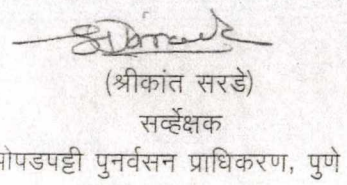 (श्रीकांत सरडे)
सर्व्हेक्षक
ोपडपट्टी पुनर्वसन प्राधिकरण, पुणे